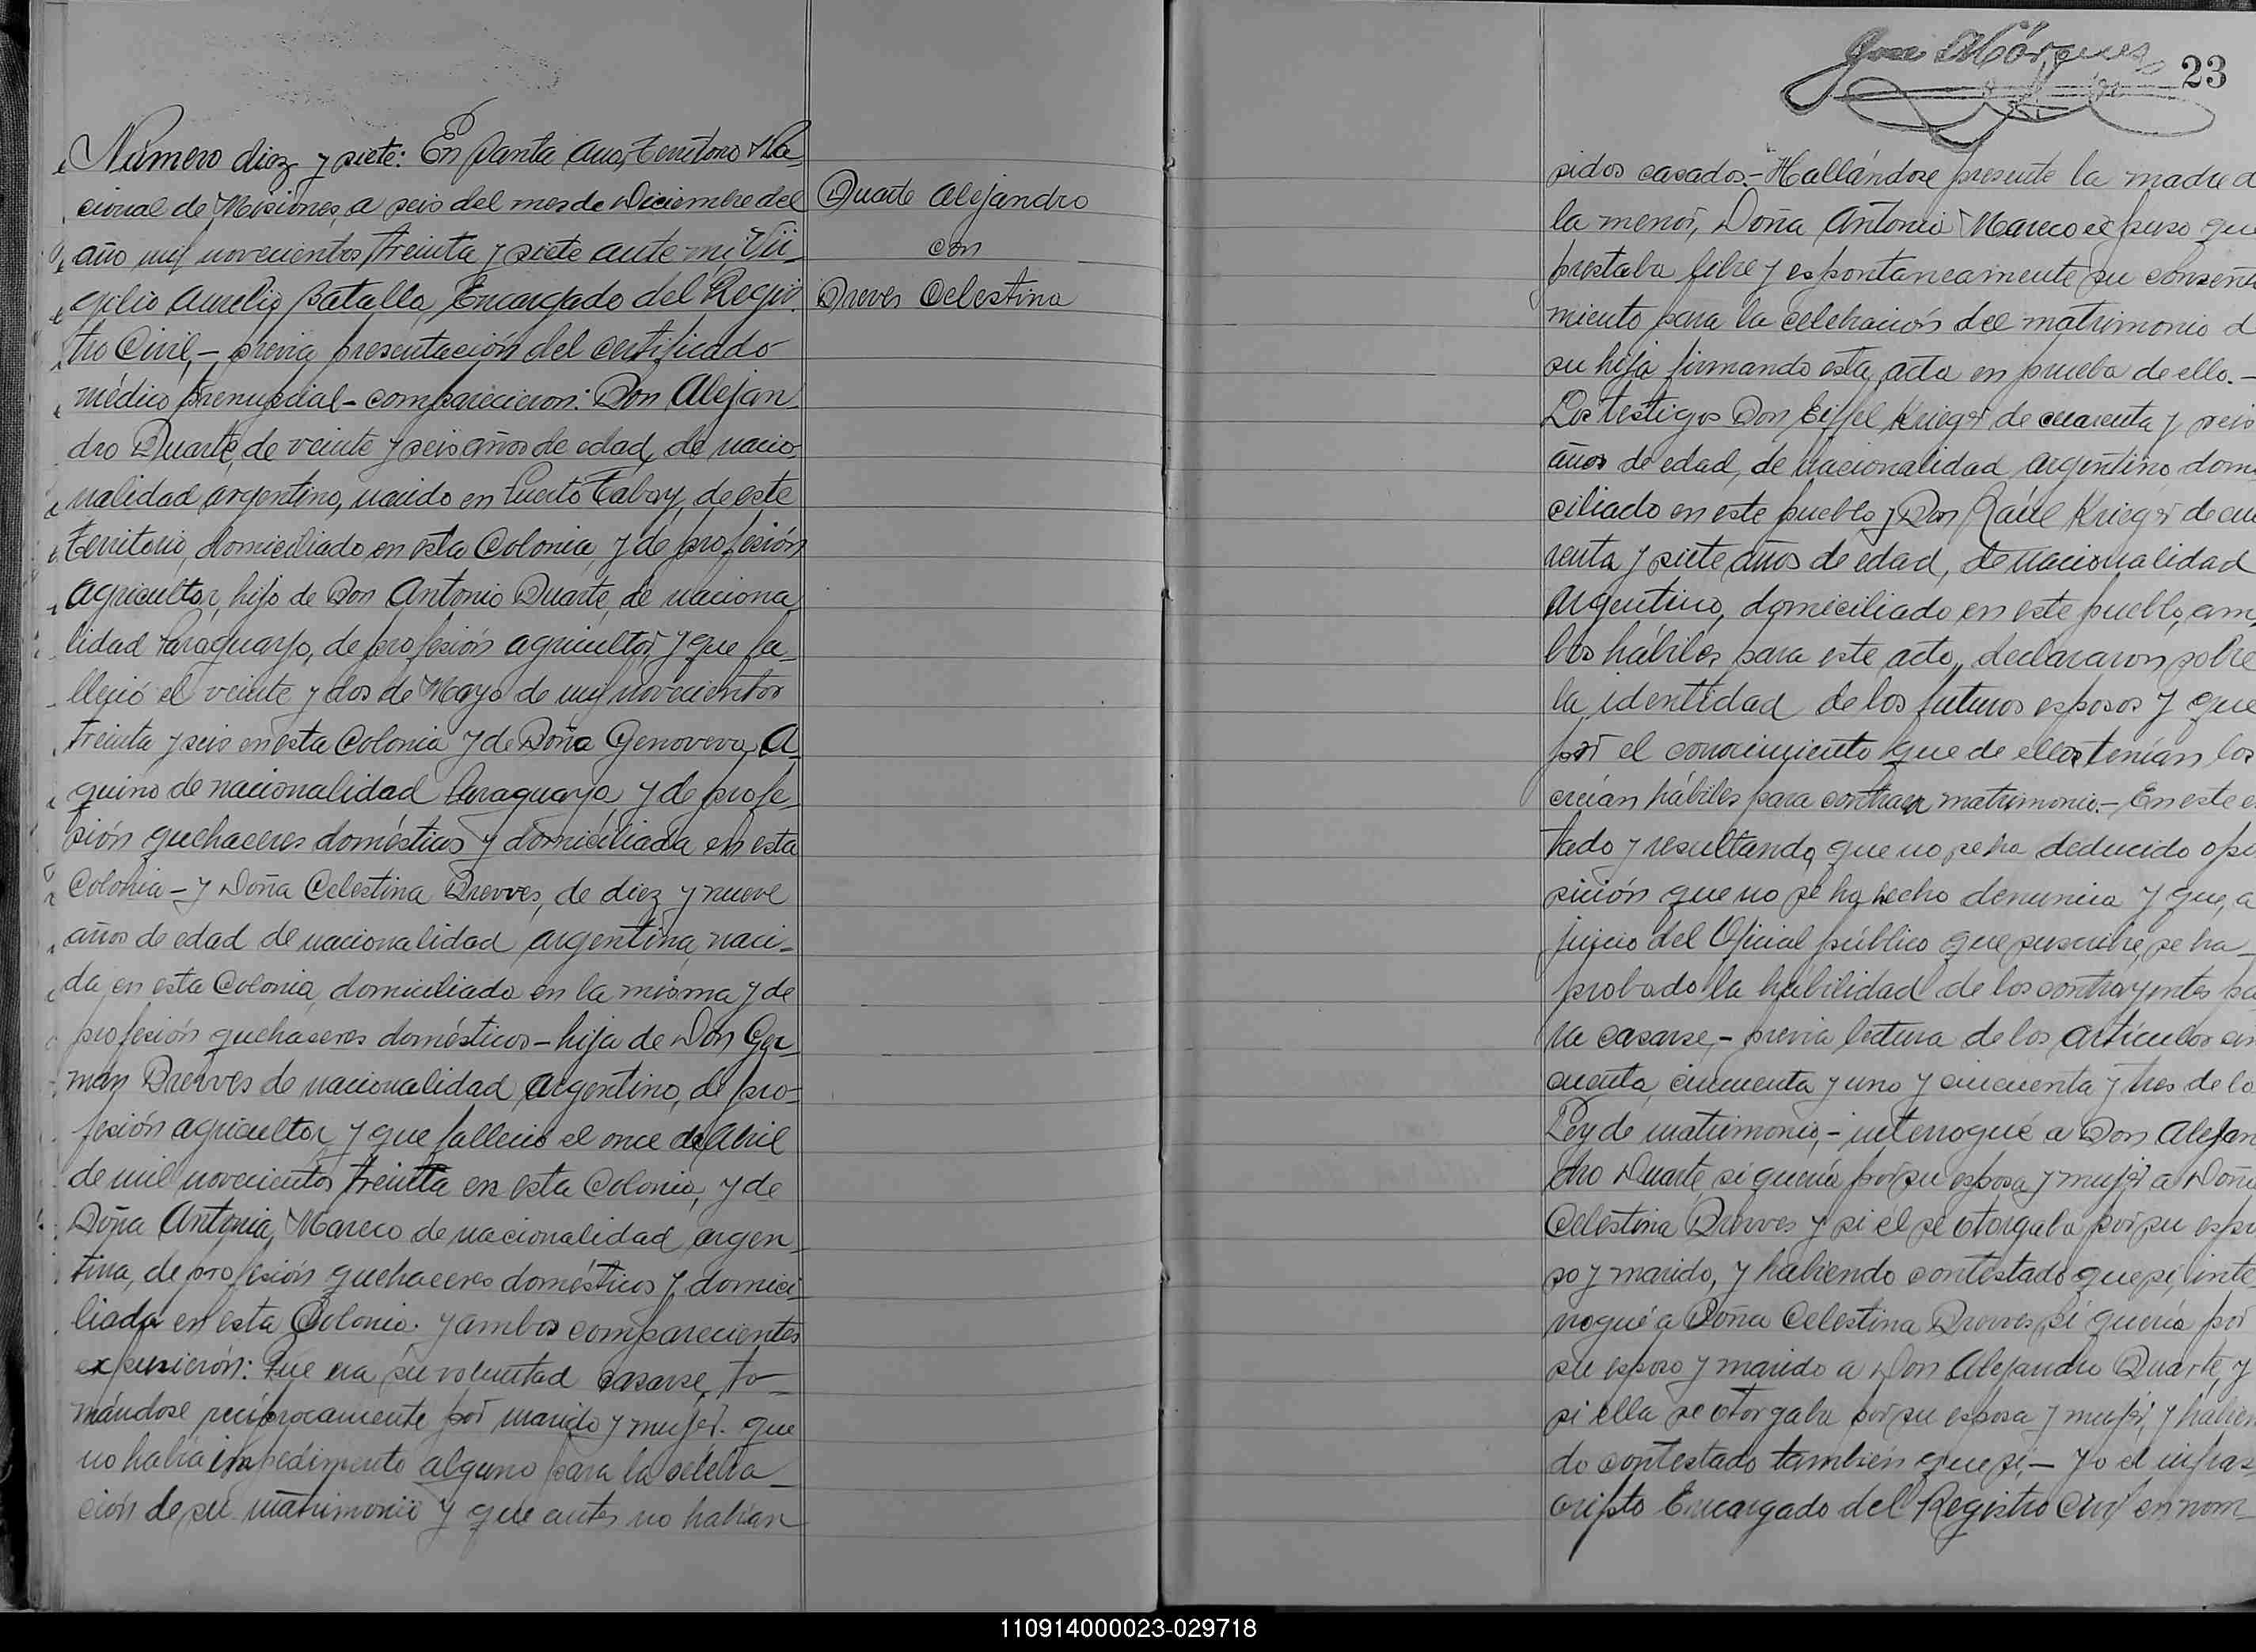 Número diez y siete: En Santa Ana, territorio Na-
cional de Misiones, a seis del mes de Diciembre del
año mil novecientos treinta y siete ante mi Vir-
gilio Aurelio Batalla, Encargado del Regis-
tro Civil,- previa presentación del certificado
médico prenupcial- comparecieron: Don Alejan-
dro Duarte, de veinte y seis años de edad, de nacio-
nalidad argentino, nacido en Puerto Tabay, de este
territorio, domiciliado en esta Colonia, y de profesión
agricultor, hijo de Don Antonio Duarte, de naciona
lidad Paraguayo, de profesión agricultor, y que fa-
lleció el veinte y dos de Mayo de mil novecientos
treinta y seis en esta Colonia y de Doña Genoveva A-
quino de nacionalidad Paraguaya y de profe-
sión quehaceres domésticos y domiciliada en esta
Colonia- y Doña Celestina Drewes, de diez y nueve
años de edad de nacionalidad argentina, naci-
da en esta Colonia, domiciliada en la misma y de
profesión quehaseres domésticos- hija de Don Ger-
man Drewes de nacionalidad argentino, de pro-
fesión agricultor, y que falleció el once de Abril
de mil novecientos treinta en esta Colonia, y de
Doña Antonia Mareco de nacionalidad argen-
tina, de profesión quehaceres domésticos y domici-
liada en esta Colonia. y ambos comparecientes
expusieron: Que era su voluntad casarse, to-
mándose recíprocamente por marido y mujer. que
no había impedimento alguno para la celebra-
ción de su matrimonio y que antes no habían
Duarte Alejandro
con
Dreves Celestina
23
sidos casados.- Hallándose presente la madre d
la menor, Doña Antonia Mareco expuso que
prestaba libre y espontaneamente su consenti
miento para la celebración del matrimonio d
su hija firmando esta acta en prueba de ello.-
Los testigos Don Eiffel Krieger de cuarenta y seis
años de edad, de nacionalidad argentino domi
ciliado en este pueblo y Don Raúl Krieger de cua
renta y siete años de edad, de nacionalidad
argentino, domiciliado en este pueblo, am-
bos hábiles para este acto, declararon sobre
la identidad de los futuros esposos y que
por el conocimiento que de ellos tenían los
creían hábiles para contraer matrimonio.- En este es
tado y resultando que no se ha deducido opo
sición que no se ha hecho denuncia y que, a
juicio del Oficial público que suscribe, se ha
probado la habilidad de los contrayentes pa
ra casarse,- previa lectura de los artículos cin
cuenta, cincuenta y uno y cincuenta y tres de la
Ley de matrimonio,- interrogué a Don Alejan
dro Duarte, si quería por su esposa y mujer a Doña
Celestina Drewes y si él se otorgaba por su espo
so y marido, y habiendo contestado que si, inte
rrogué a Doña Celestina Drewes, si quería por
su esposo y marido a Don Alejandro Duarte, y
si ella se otorgaba por su esposa y mujer, y habien
do contestado también que si,- yo el infras-
cripto Encargado del Registro Civil en nom-
110914000023-029718